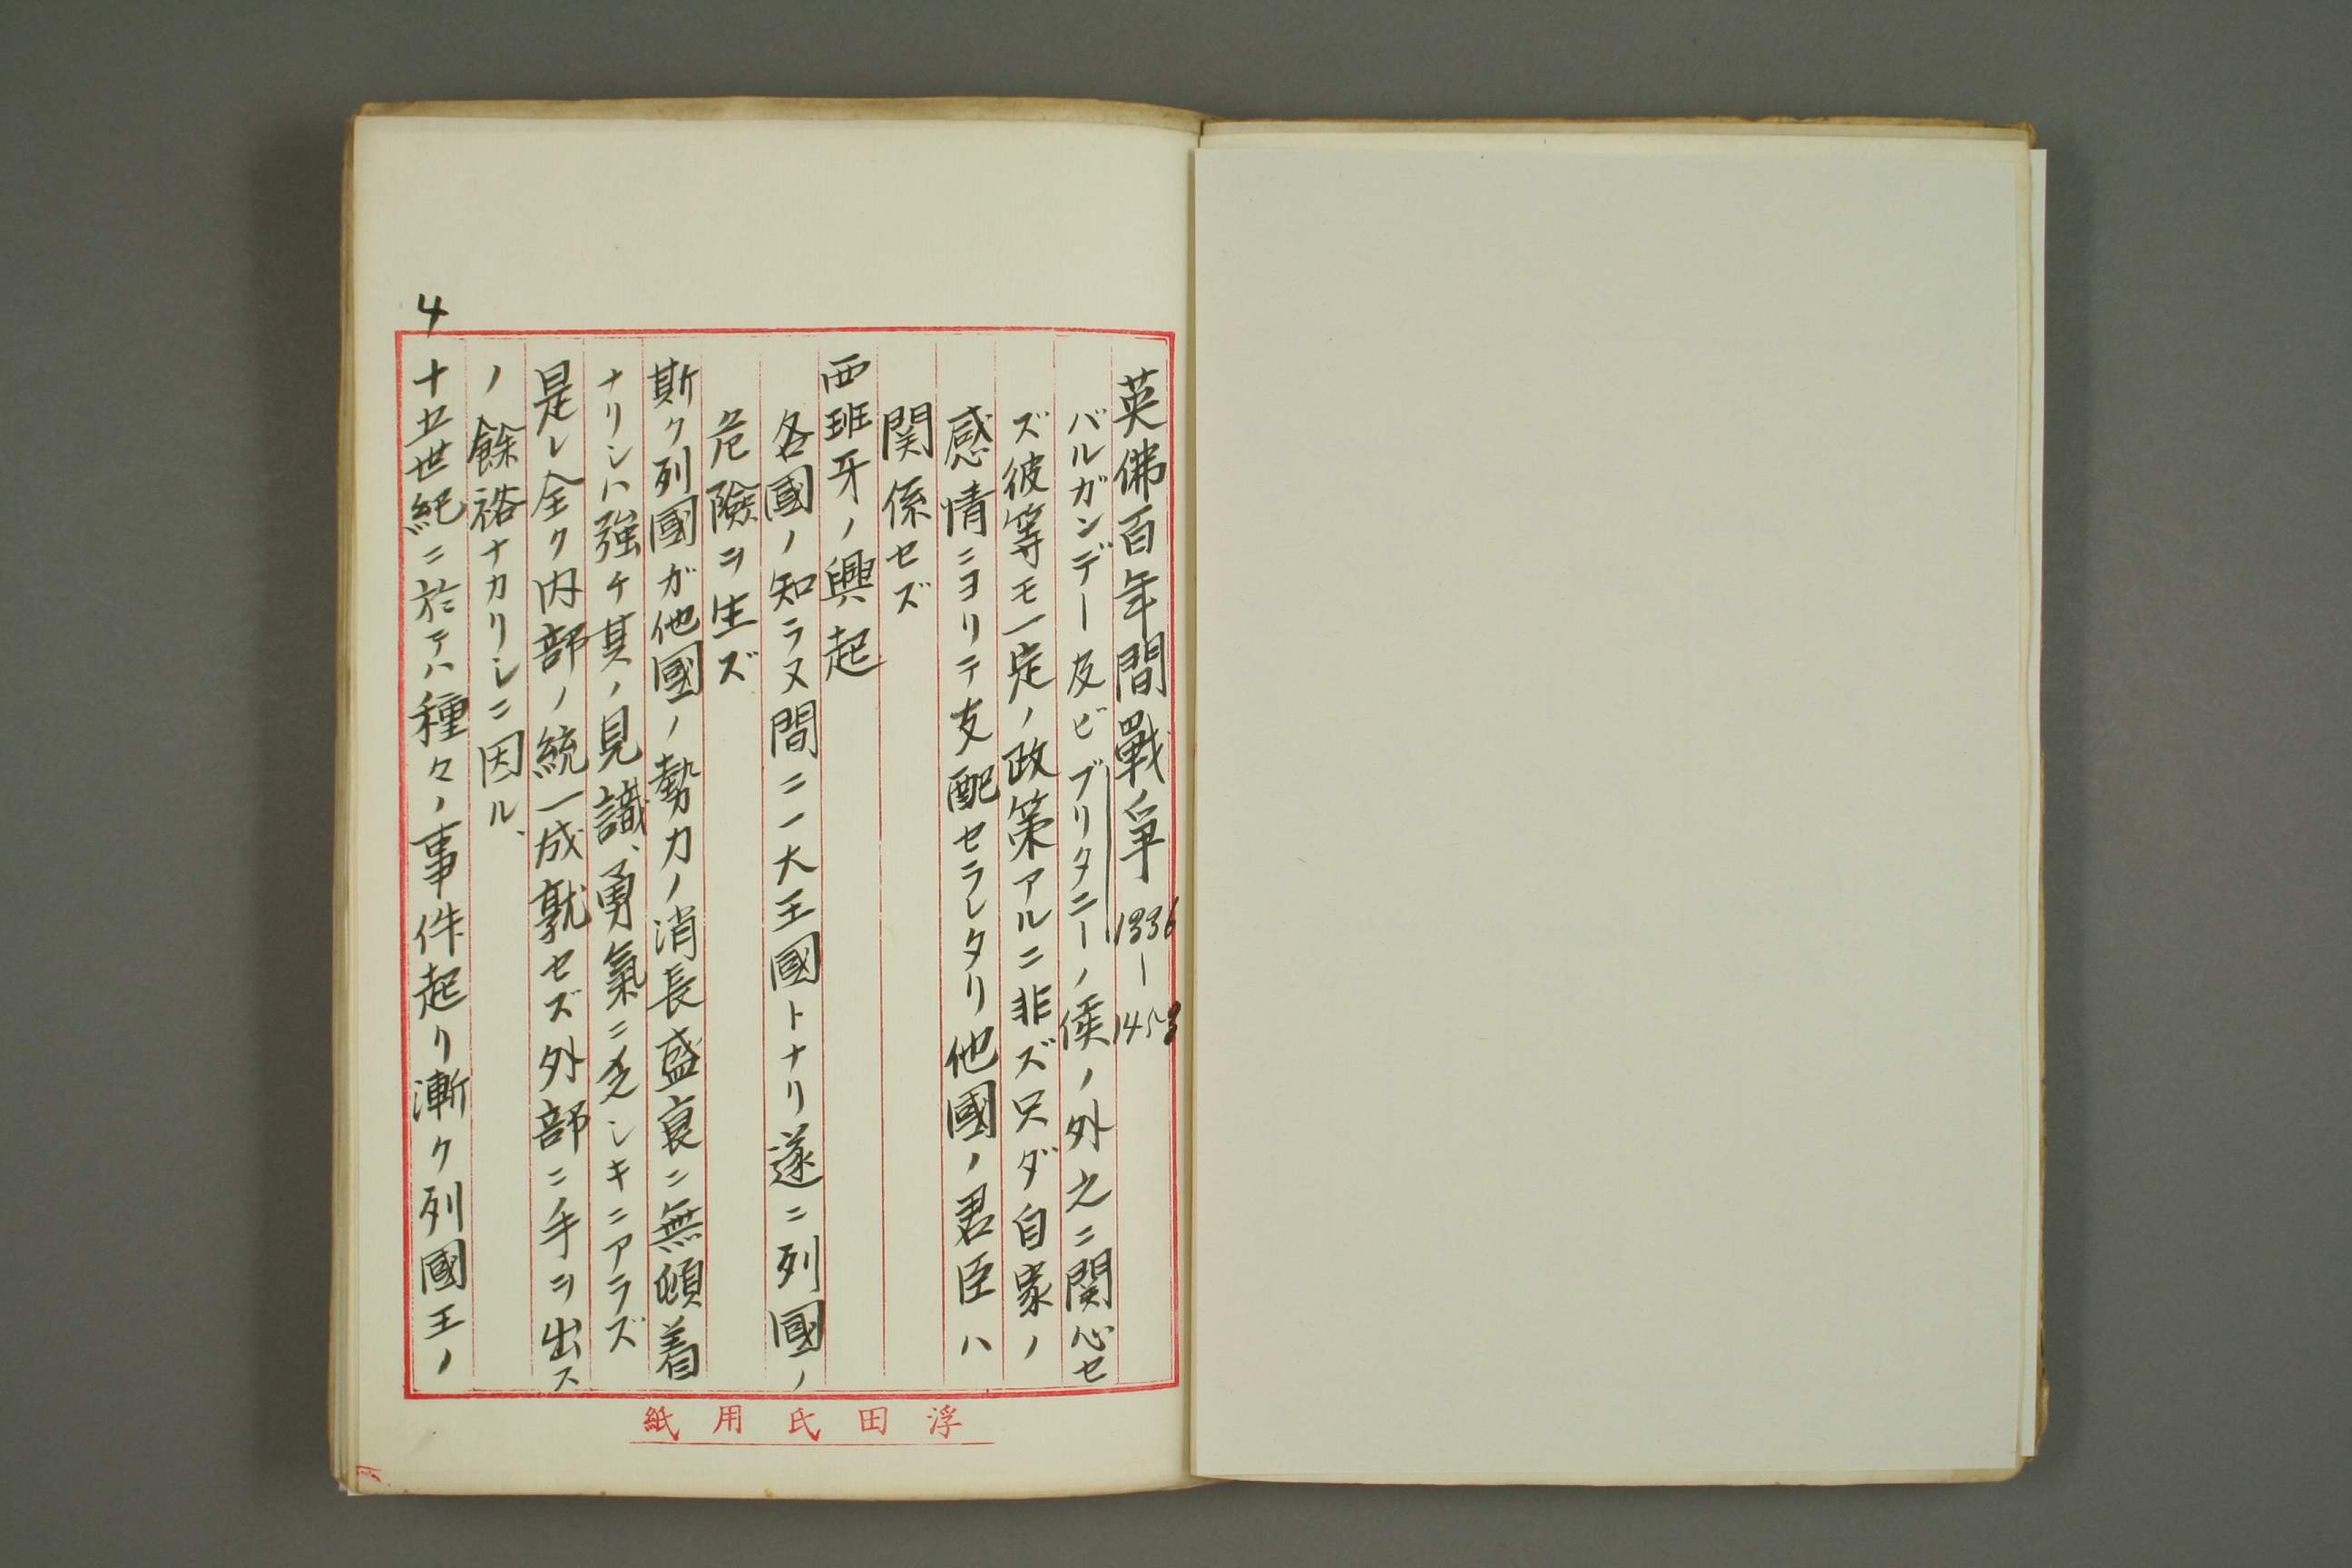 英佛百年間戰爭 1336―1453
バルガンデー及ビブリタニーノ侯ノ外之ニ関心セ
ズ彼等モ一定ノ政策アルニ非ズ只ダ自家ノ
感情ニヨリテ支配セラレタリ他國ノ君臣ハ
関係セズ
西班牙ノ興起
各國ノ知ラヌ間ニ一大王國トナリ遂ニ列國ノ
危險ヲ生ズ
斯ク列國ガ他國ノ勢力ノ消長盛衰ニ無頓着
ナリシハ強チ其ノ見識、勇氣ニ乏シキニアラズ
是レ全ク内部ノ統一成就セズ外部ニ手ヲ出ス
ノ餘裕ナカリシニ因ル、
4
十五世紀ニ於テハ種々ノ事件起リ漸ク列國王ノ
浮田氏用紙